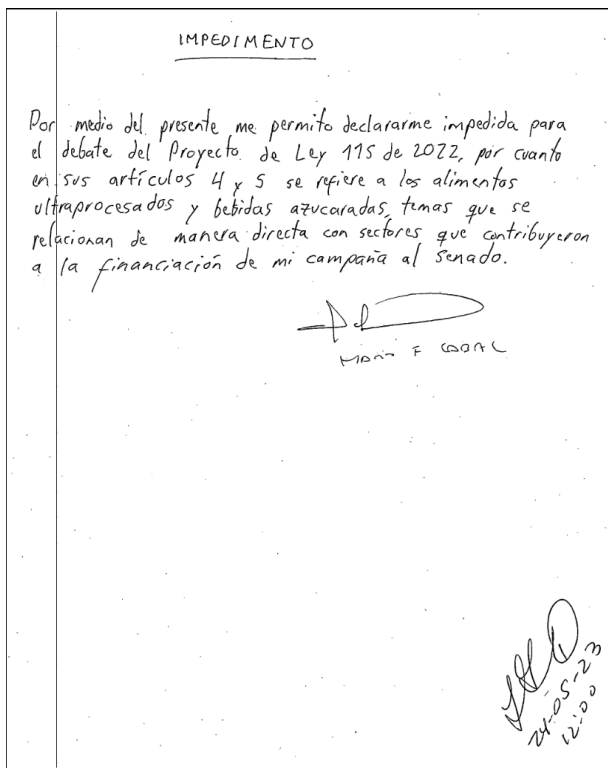 IMPEDIMENTO
Por medio del presente me permito declararme impedida para
el debate del Proyecto de Ley 115 de 2022, por cuanto
en sus artículos 4 y 5 se refiere a los alimentos
ultraprocesados y bebidas azucaradas, temas que se
relacionan de manera directa con sectores que contribuyeron
a la financiación de mi campaña al Senado.
MARIA F CABAL
24-05-23
12:00